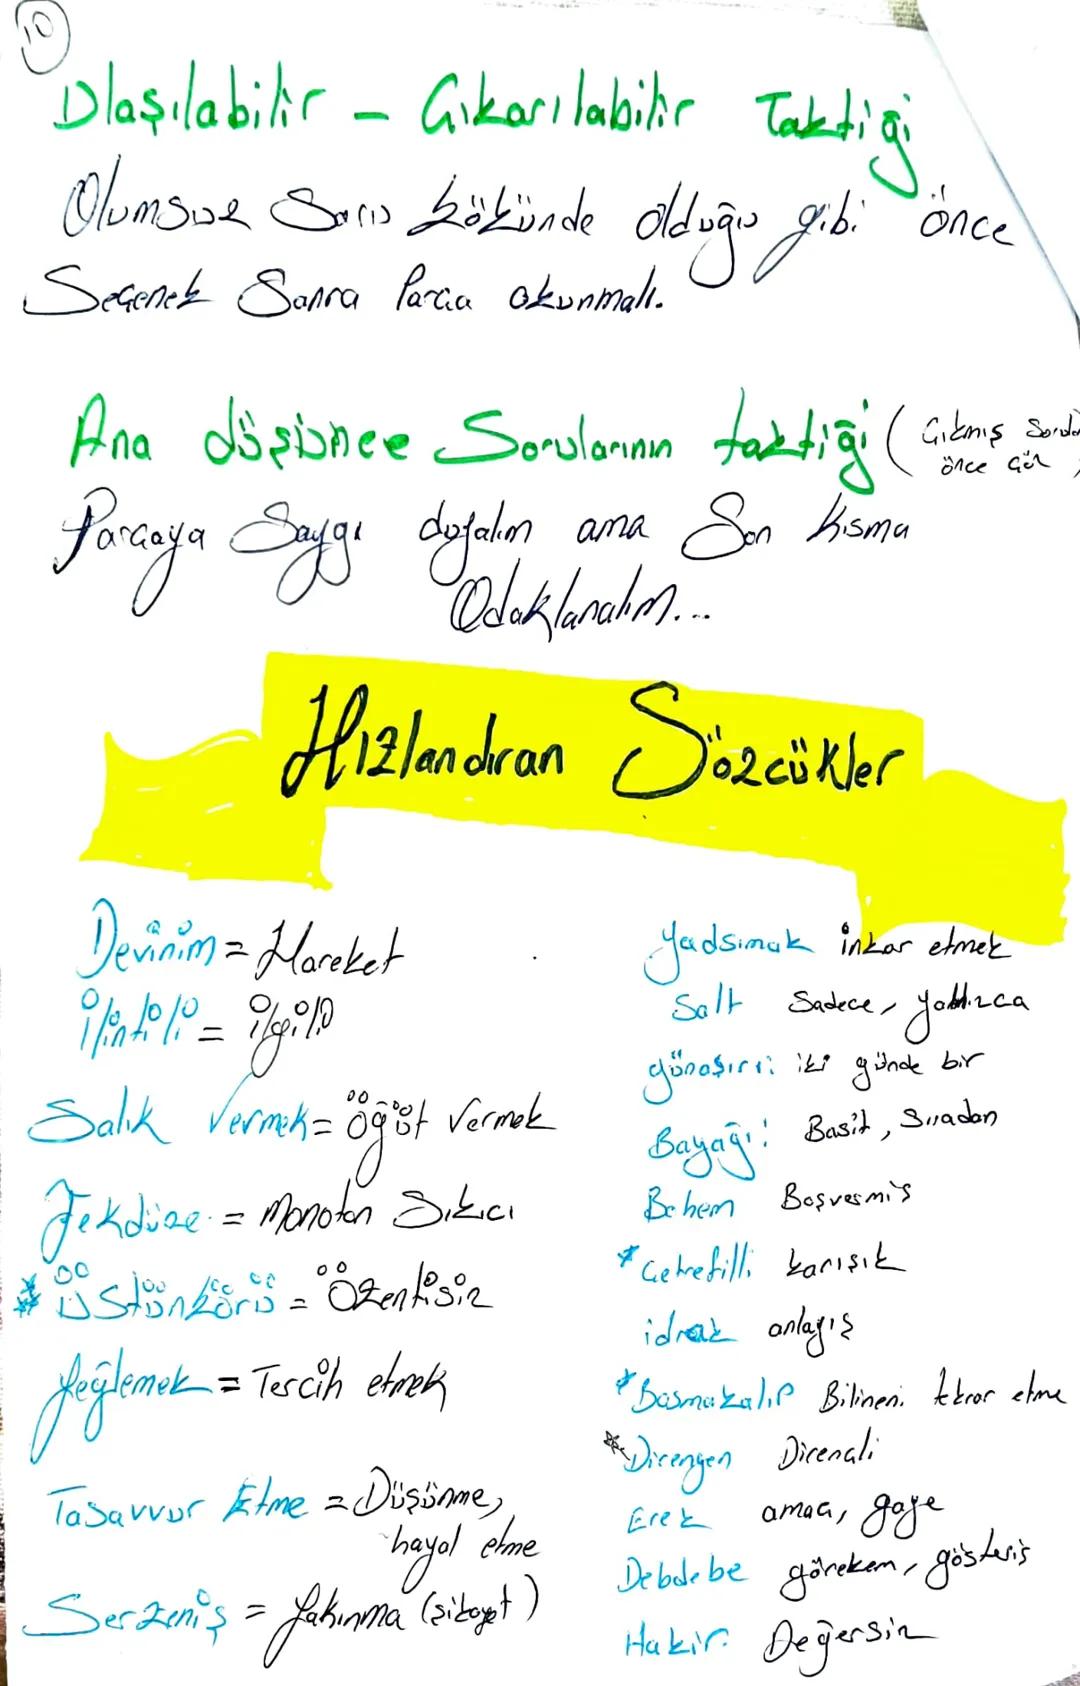 10
Ulaşılabilir - Çıkarılabilir Taktiği
Olumsuz Soru kökünde olduğu gibi önce
Seçenek Sonra Parça okunmalı.
Ana düşünce Sorularının taktiği ( Çıkmış
önce Çöz
Parçaya Saygı duyalım ama Son kısma
Odaklanalım...
Hızlandıran Sözcükler
Devinim = Hareket
İlintili = İlgili
Salık Vermek = Öğüt Vermek
Tekdüze = Monoton Sıkıcı
Üstünkörü = Özentisiz
Yeğlemek = Tercih etmek
Tasavvur Etme = Düşünme,
hayal etme
Serzeniş = Yakınma (şikayet)
Yadsımak inkar etmek
Salt Sadece, yalnızca
günaşırı: iki günde bir
Bayağı: Basit, Sıradan
Behem Boşvermiş
* Çetrefilli karışık
idrak anlayış
* Basmakalıp Bilineni tekrar etme
* Dirençen Dirençli
Erek amaç, gaye
Debdebe görekem, gösteriş
Hakir Değersiz